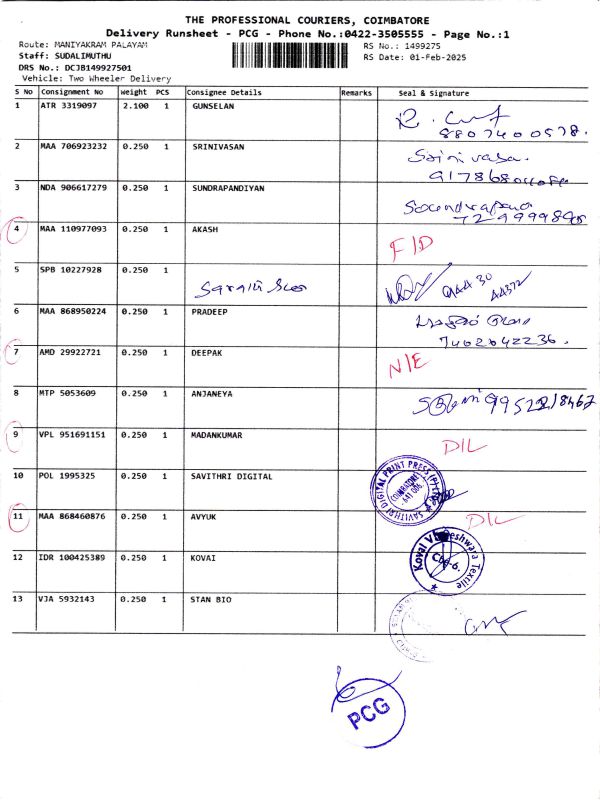 THE PROFESSIONAL COURIERS, COIMBATORE
Delivery Runsheet - PCG - Phone No.:0422-3505555 - Page No.:1
Route: MANIYAKRAM PALAYAM RS No.: 1499275
Staff: SUDALIMUTHU RS Date: 01-Feb-2025
DRS No.: DCJB149927501
Vehicle: Two Wheeler Delivery
S No Consignment No Weight PCS Consignee Details Remarks Seal & Signature
1 ATR 3319097 2.100 1 GUNSELAN
8807400578.
2 MAA 706923232 0.250 1 SRINIVASAN Srinivasa.
3 NDA 906617279 0.250 1 SUNDRAPANDIYAN
4 MAA 110977093 0.250 1 AKASH F/D
5 SPB 10227928 0.250 1
6 MAA 868950224 0.250 1 PRADEEP
7402642236.
7 AMD 29922721 0.250 1 DEEPAK N/E
8 MTP 5053609 0.250 1 ANJANEYA
9 VPL 951691151 0.250 1 MADANKUMAR D/L
10 POL 1995325 0.250 1 SAVITHRI DIGITAL SAVITHRI DIGITAL PRINT PRESS (P) LTD
COIMBATORE
641 006.
11 MAA 868460876 0.250 1 AVYUK D/L
12 IDR 100425389 0.250 1 KOVAI Kovai Textile
Cbe-6.
13 VJA 5932143 0.250 1 STAN BIO
PCG